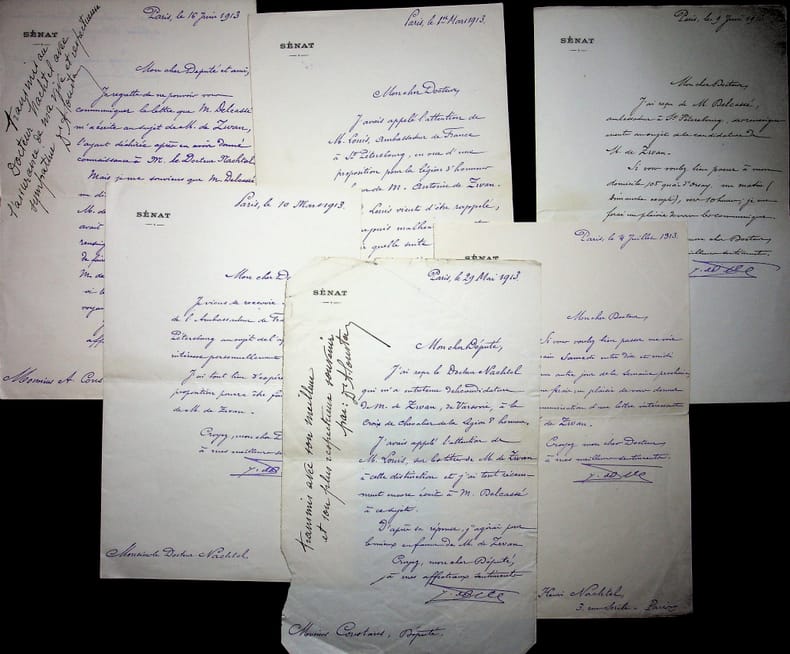 Paris, le 16 Juin 1913
SÉNAT
transmis au
Docteur Nachtel avec
l'assurance de ma
sympathie
Mon cher Député et ami,
Je regrette de ne pouvoir vous
communiquer la lettre que M. Delcassé
m'a écrite au sujet de M. de Zwan,
l'ayant déchirée après en avoir donné
connaissance à M. le Docteur Nachtel.
Mais je me souviens que M. Delcassé
Paris, le 1er Mars 1913.
SÉNAT
Mon cher Docteur,
J'avais appelé l'attention de
M. Louis, Ambassadeur de France
à St Pétersbourg, en vue d'une
proposition pour la Légion d'honneur
de M. Antoine de Zwan.
Louis vient d'être rappelé,
quelle suite
Paris, le 9 Juin 1913
SÉNAT
Mon cher Docteur,
J'ai reçu de M. Delcassé,
ambassadeur à St Pétersbourg,
au sujet de la candidature de
M. de Zwan.
Si vous voulez bien passer à mon
domicile 105 quai d'Orsay, un matin (
dimanche excepté), vers 10 heures, je me
ferai un plaisir de vous les communiquer.
mon cher Docteur,
Paris, le 10 Mars 1913.
SÉNAT
Mon cher D
Je viens de recevoir
de l'Ambassadeur de Fra
Pétersbourg au sujet de l'
J'ai tout lieu d'espérer
de M. de Zwan.
Croyez, mon cher D
à mes meilleurs
Monsieur le Docteur Nachtel
Monsieur A. Cons
Paris, le 4 Juillet 1913.
SÉNAT
Mon cher Docteur,
Si vous voulez bien passer me voir
Samedi entre dix et midi
un autre jour de la semaine prochaine,
me ferai un plaisir de vous donner
communication d'une lettre intéressante
de Zwan.
Croyez mon cher Docteur,
à mes meilleurs sentiments
Henri Nachtel,
Paris
Paris, le 29 Mai 1913.
SÉNAT
transmis avec son meilleur
et son plus respectueux souvenir
par:
Mon cher Député,
J'ai reçu le Docteur Nachtel
qui m'a entretenu de la candidature
de M. de Zwan, de Varsovie, à la
Croix de Chevalier de la Légion d'honneur.
J'avais appelé l'attention de
M. Louis, sur les titres de M. de Zwan
à cette distinction et j'ai tout récem-
ment encore écrit à M. Delcassé
à ce sujet.
D'après sa réponse, j'agirai pour
le mieux en faveur de M. de Zwan
Croyez, mon cher Député,
à mes affectueux sentiments
Monsieur Constans, Député.